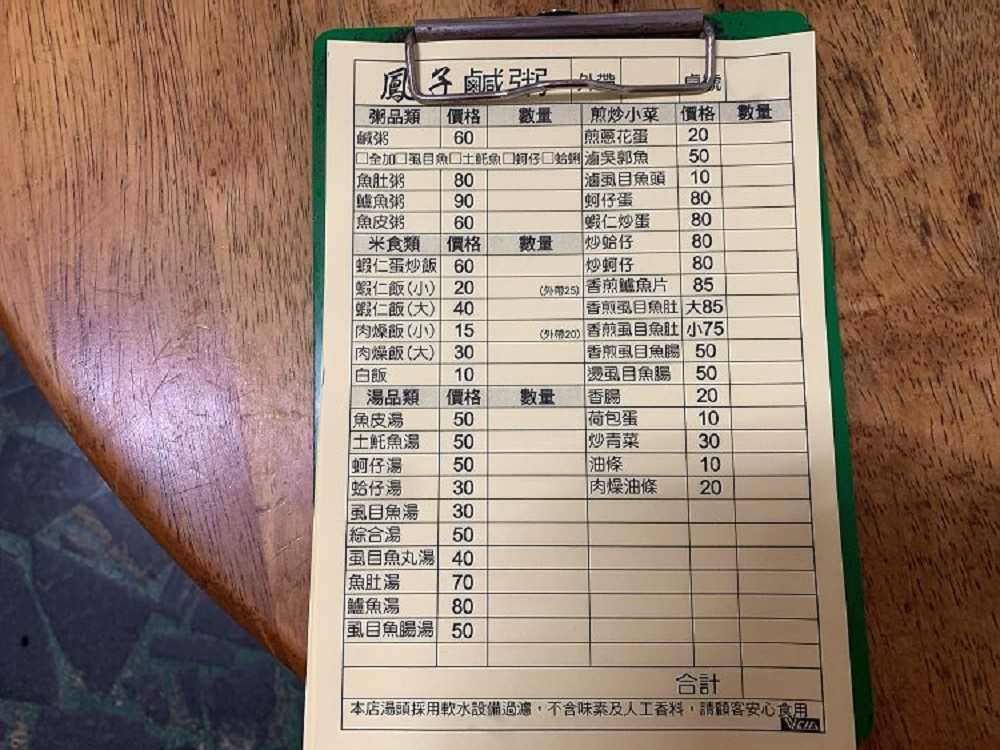 鳳子鹹粥 外帶 桌號
粥品類 價格 數量 煎炒小菜 價格 數量
鹹粥 60 煎蔥花蛋 20
□全加□虱目魚□土魠魚□蚵仔□蛤蜊 滷吳郭魚 50
魚肚粥 80 滷虱目魚頭 10
鱸魚粥 90 蚵仔蛋 80
魚皮粥 60 蝦仁炒蛋 80
米食類 價格 數量 炒蛤仔 80
蝦仁蛋炒飯 60 炒蚵仔 80
蝦仁飯(小) 20 (外帶25) 香煎鱸魚片 85
蝦仁飯(大) 40 香煎虱目魚肚 大85
肉燥飯(小) 15 (外帶20) 香煎虱目魚肚 小75
肉燥飯(大) 30 香煎虱目魚腸 50
白飯 10 燙虱目魚腸 50
湯品類 價格 數量 香腸 20
魚皮湯 50 荷包蛋 10
土魠魚湯 50 炒青菜 30
蚵仔湯 50 油條 10
蛤仔湯 30 肉燥油條 20
虱目魚湯 30
綜合湯 50
虱目魚丸湯 40
魚肚湯 70
鱸魚湯 80
虱目魚腸湯 50
合計
本店湯頭採用軟水設備過濾,不含味素及人工香料,請顧客安心食用